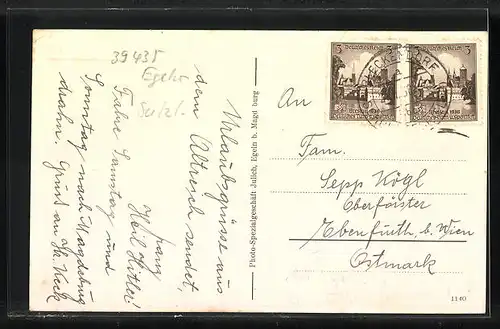 39435
Egeln
Urlaubsgrüsse aus
dem Altreich sendet,
Franz
Heil Hitler!
Fahre Samstag und
Sonntag nach Magdeburg
Gruss an
Photo-Spezialgeschäft Julich, Egeln b. Magdeburg
3 3
Deutsches Reich Deutsches Reich
An
Fam.
Sepp Kögl
Oberförster
Ebenfurth b. Wien
Ostmark
1140